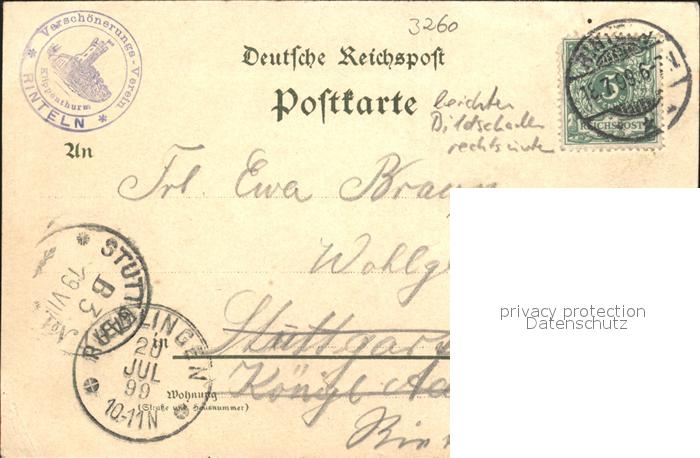 3260
Verschönerungs-Verein
Klippenthurm
* RINTELN *
Deutsche Reichspost
Postkarte
REICHSPOST
leichter
Bildschaden
rechts unten
An
Frl. Ewa
Wohlg
privacy protection
Datenschutz
STUTT
B 3
19 VII
Stuttgar
LINGEN
20
JUL
99
10-11N
in
Königl
Wohnung
(Straße und Hausnummer)